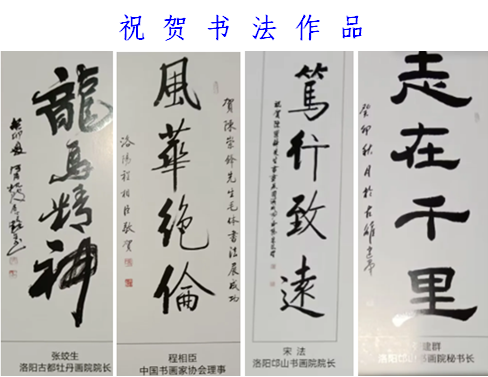 祝贺书法作品
龍馬精神
張姣生
洛阳古都牡丹画院院长
風華絶倫
賀陳崇鋒先生毛体書法展成功
洛陽程相臣敬賀
程相臣
中国书画家协会理事
篤行致遠
宋 法
洛阳邙山书画院院长
志在千里
癸卯秋月於古雒
建群
洛阳邙山书画院秘书长